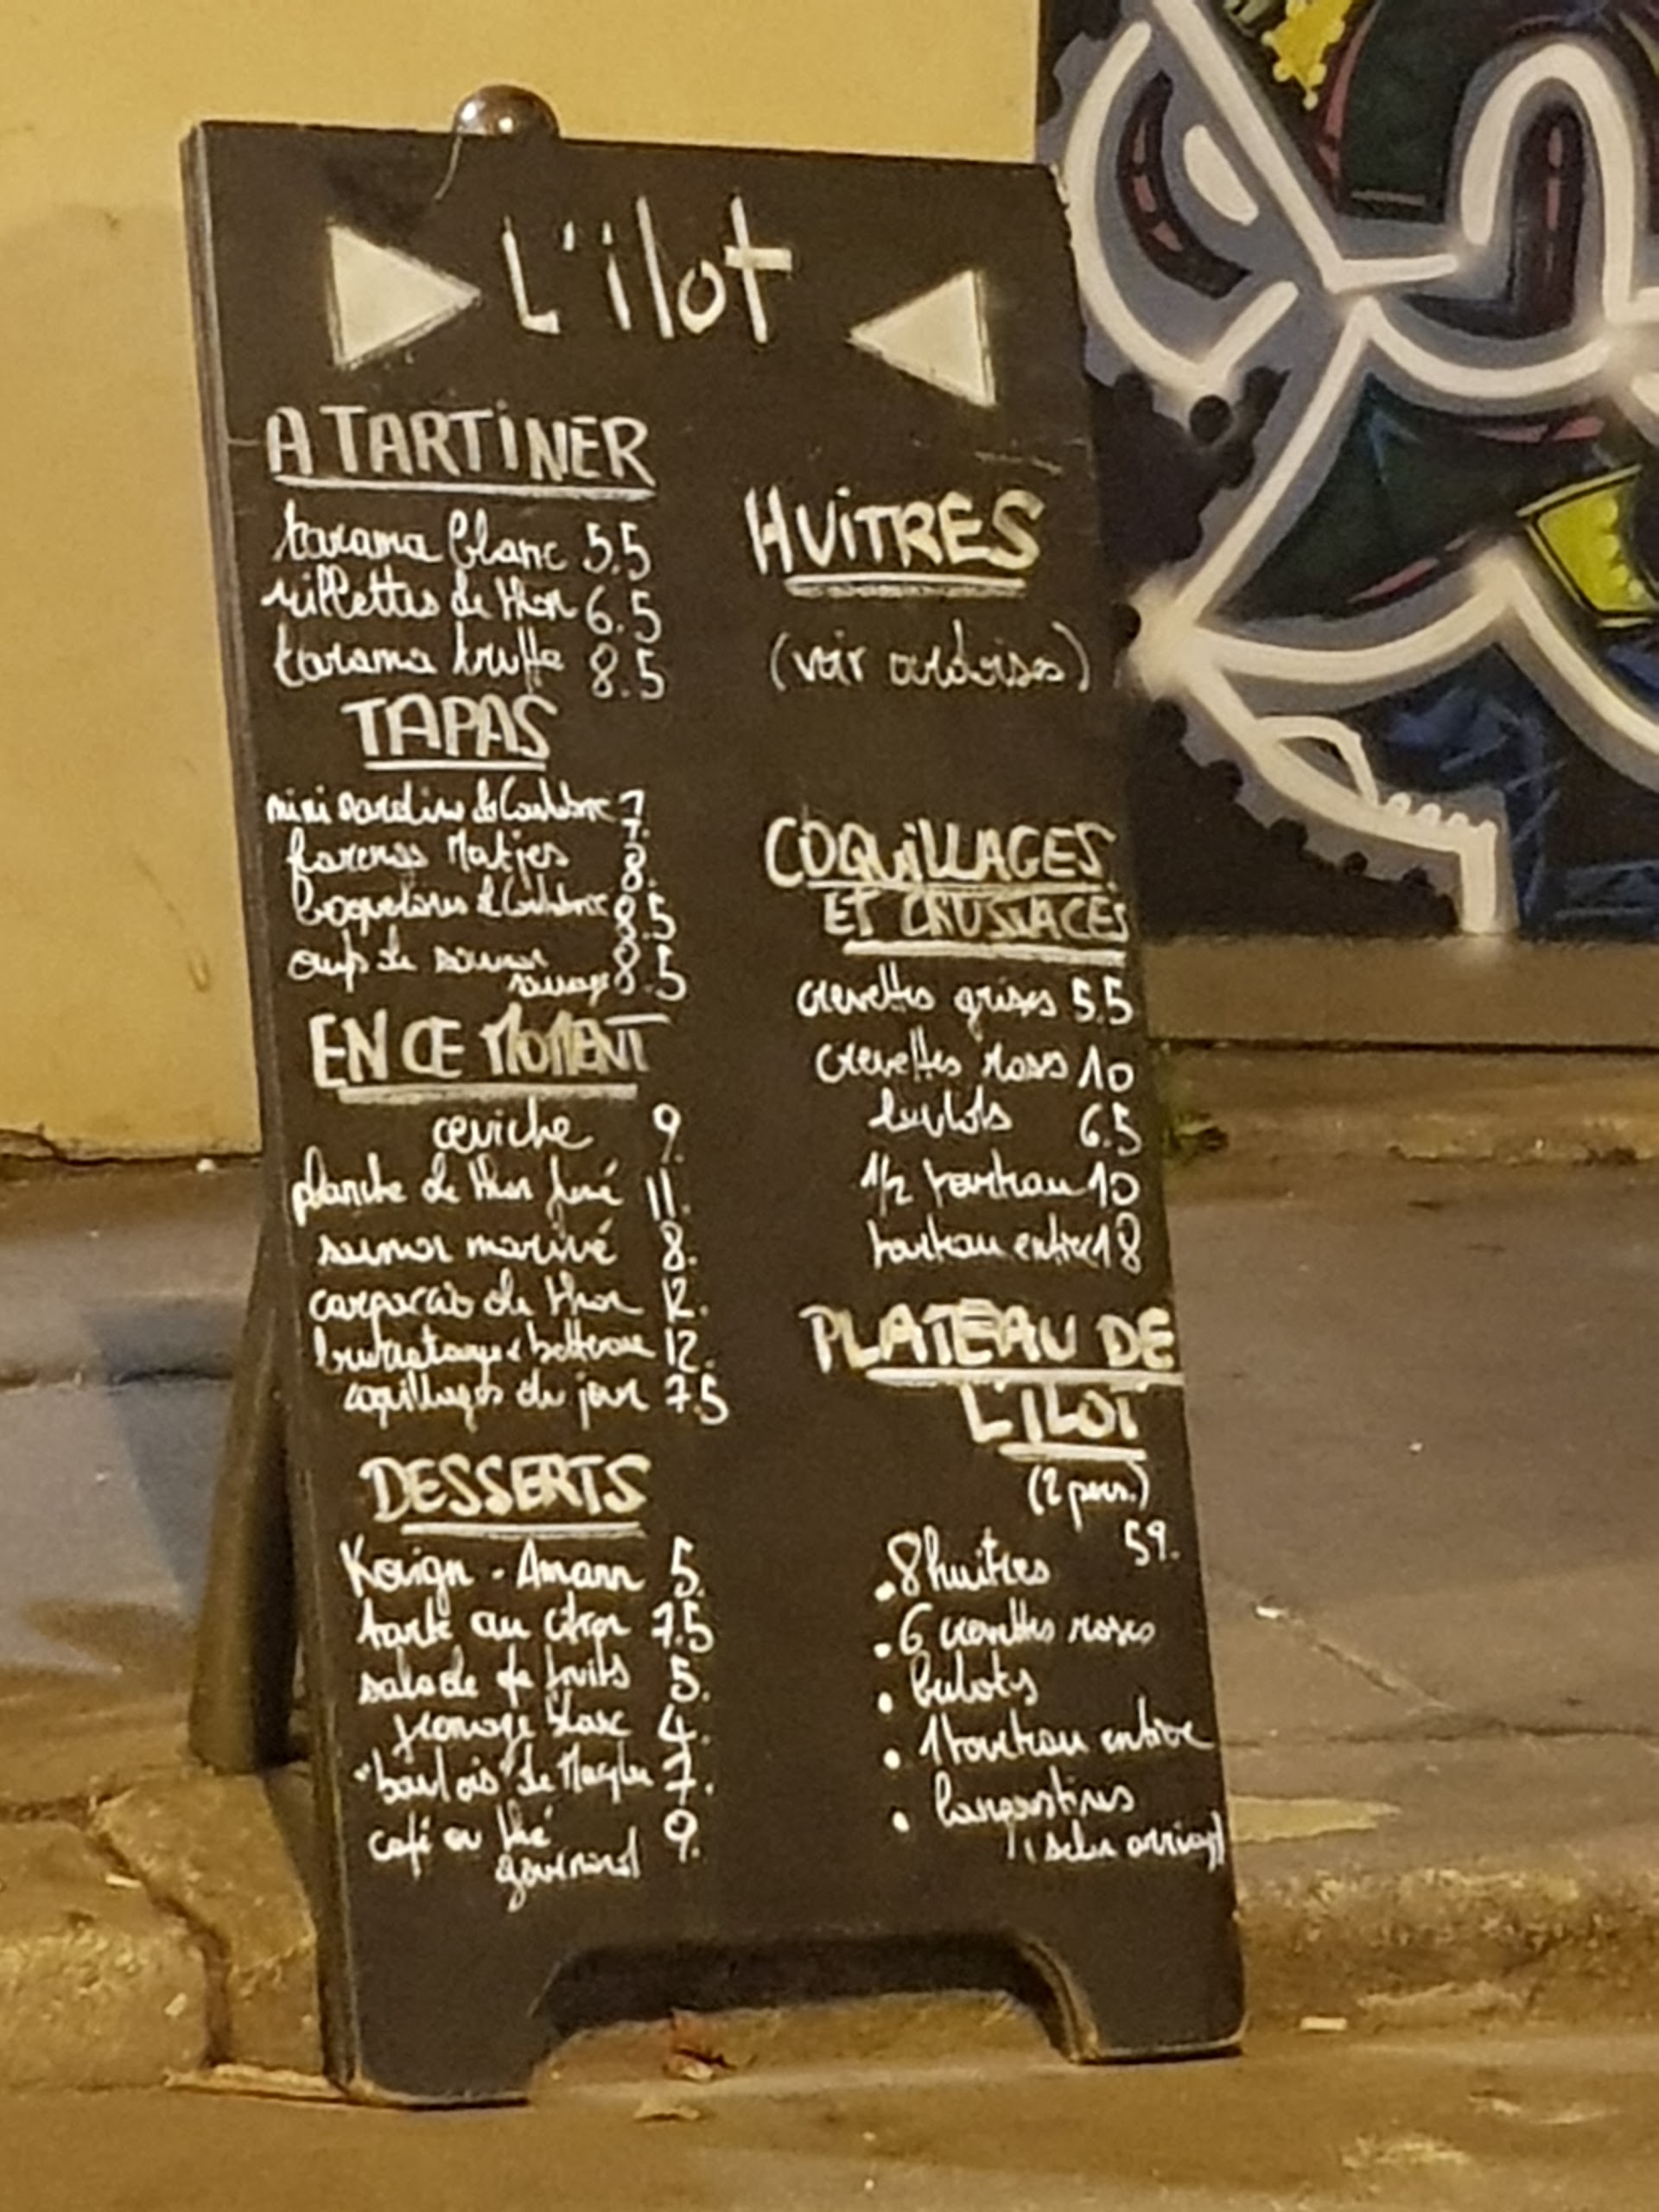 L'ilot
A TARTINER
tarama blanc 5.5
rillettes de thon 6.5
tarama truffe 8.5
TAPAS
mini sardines de 7.
harengs Matjes 8.
8.5
œufs de saumon
sauvage 8.5
EN CE MOMENT
ceviche 9.
planche de thon fumé 11.
saumon mariné 8.
carpaccio de thon 12.
12.
coquillages du jour 7.5
DESSERTS
Kouign-Amann 5.
tarte au citron 7.5
salade de fruits 5.
fromage blanc 4.
de 7.
café ou thé 9.
gourmand
HUITRES
(voir ardoises)
COQUILLAGES
ET CRUSTACES
crevettes grises 5.5
crevettes roses 10
bulots 6.5
1/2 tourteau 10
tourteau entier 18
PLATEAU DE
L'ILOT
(2 pers.)
59.
. 8 huitres
. 6 crevettes roses
. bulots
. 1 tourteau entier
. langoustines
(selon arrivage)